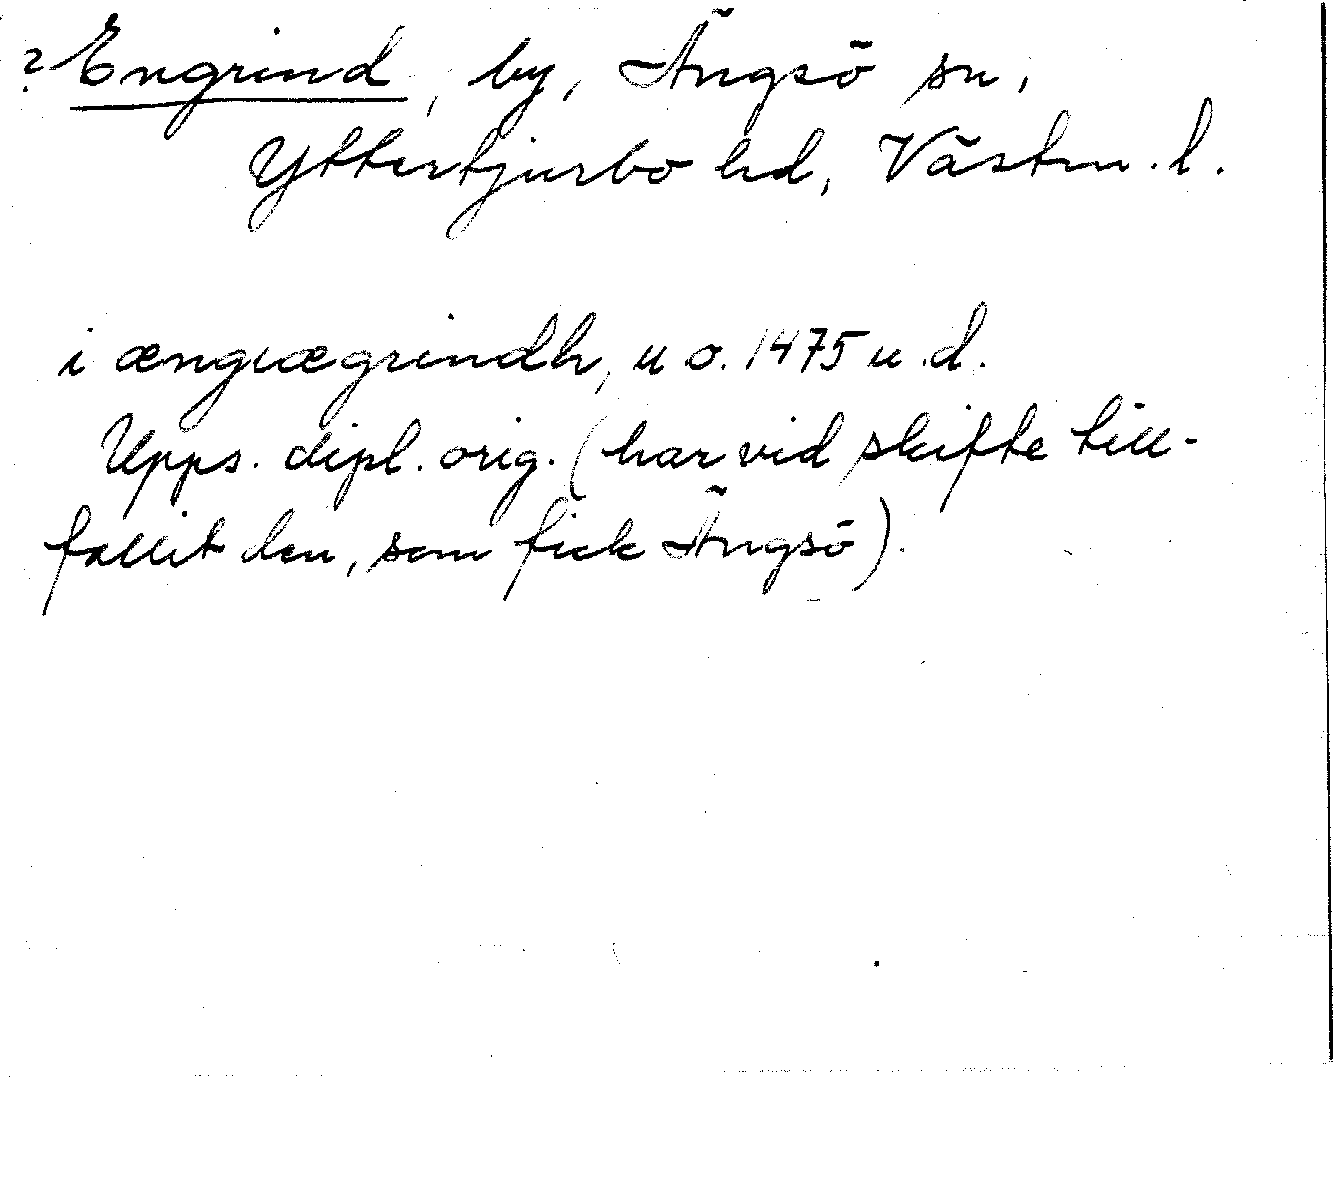 ? Engrind, by, Ängsö sn,
Yttertjurbo hd, Västm. l.
i ængiægrindh, u o. 1475 u.d.
Upps. dipl. orig. (har vid skifte till-
fallit den, som fick Ängsö).